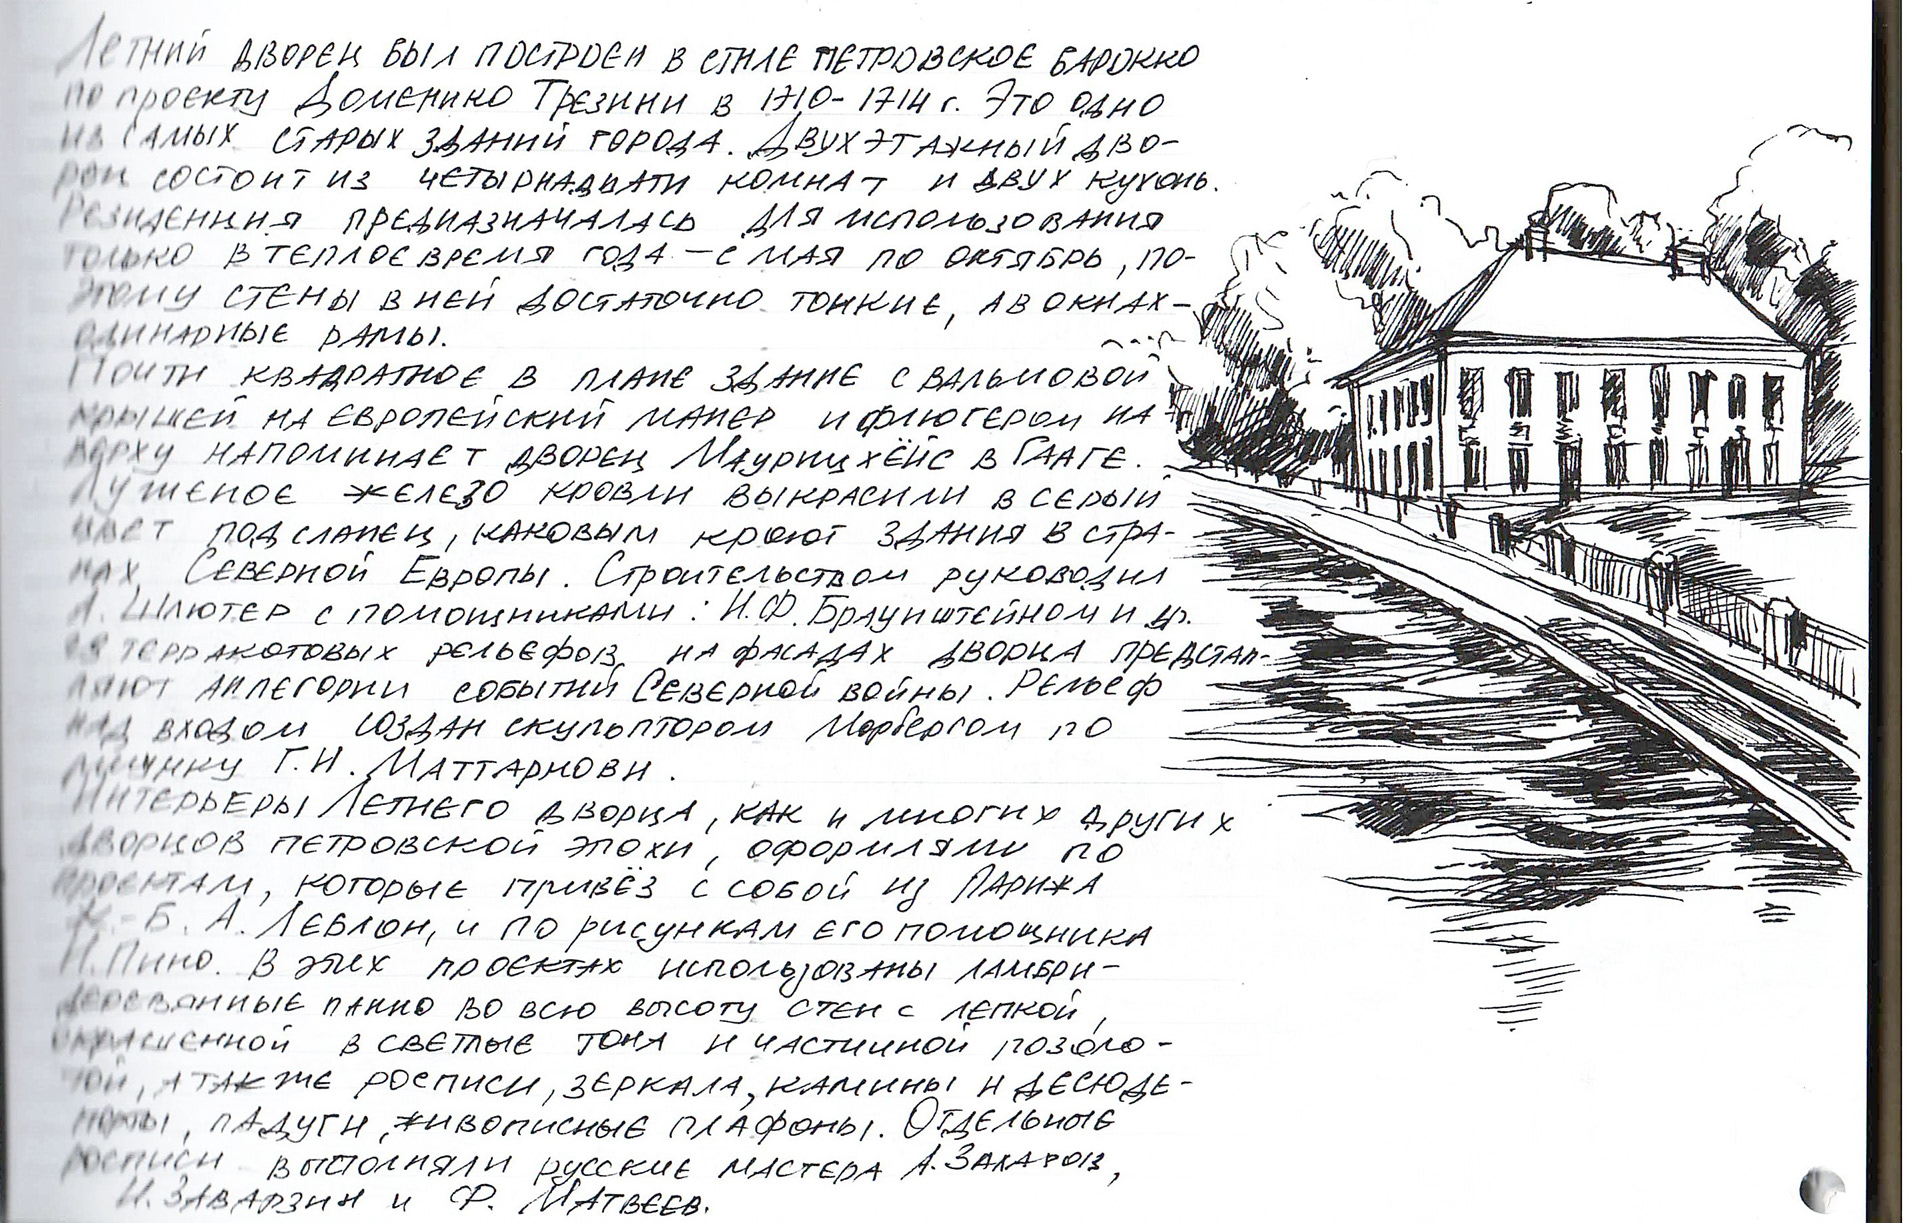 Летний дворец был построен в стиле петровское барокко
по проекту Доменико Трезини в 1710-1714 г. Это одно
из самых старых зданий города. Двухэтажный дво-
рец состоит из четырнадцати комнат и двух кухонь.
Резиденция предназначалась для использования
только в теплое время года — с мая по октябрь, по-
этому стены в ней достаточно тонкие, а в окнах -
одинарные рамы.
Почти квадратное в плане здание с вальмовой
крышей на европейский манер и флюгером на-
верху напоминает дворец Маурицхёйс в Гааге.
Луженое железо кровли выкрасили в серый
цвет под сланец, каковым кроют здания в стра-
нах Северной Европы. Строительством руководил
А. Шлютер с помощниками: И.Ф. Браунштейном и др.
28 терракотовых рельефов на фасадах дворца представ-
ляют аллегории событий Северной войны. Рельеф
над входом создан скульптором Морбергом по
рисунку Г.И. Маттарнови.
Интерьеры Летнего дворца, как и многих других
дворцов петровской эпохи, оформляли по
проектам, которые привёз с собой из Парижа
Ж.-Б. А. Леблон, и по рисункам его помощника
Н. Пино. В этих проектах использованы ламбри -
деревянные панно во всю высоту стен с лепкой,
окрашенной в светлые тона и частичной позоло-
той, а также росписи, зеркала, камины и десюде-
порты, падуги, живописные плафоны. Отдельные
росписи выполняли русские мастера А. Захаров,
И. Заварзин и Ф. Матвеев.